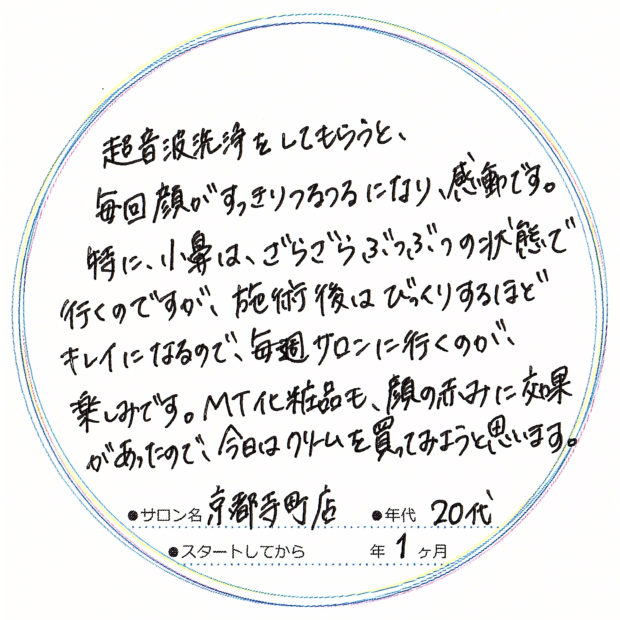 超音波洗浄をしてもらうと、
毎回顔がすっきりつるつるになり、感動です。
特に、小鼻は、ざらざらぶつぶつの状態で
行くのですが、施術後はびっくりするほど
キレイになるので、毎週サロンに行くのが、
楽しみです。MT化粧品も、顔の赤みに効果
があったので、今日はクリームを買ってみようと思います。
●サロン名 京都寺町店 ●年代 20代
●スタートしてから 年 1 ヶ月